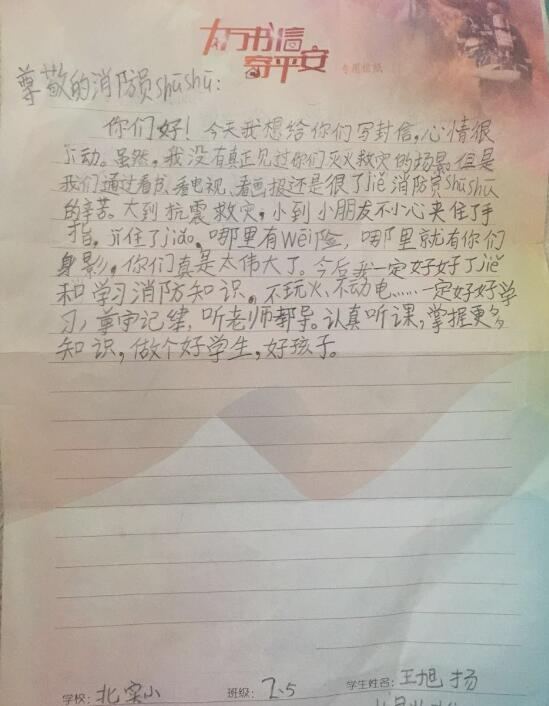 万书信
寄平安
专用信纸
尊敬的消防员shūshū:
你们好！今天我想给你们写封信，心情很
动。虽然，我没有真正见过你们灭火救灾的场景，但是
我们通过看书、看电视、看画报还是很了jiě消防员shūshū
的辛苦。大到抗震救灾，小到小朋友不小心夹住了手
指，jī住了jiǎo。哪里有wēi险，哪里就有你们
身影，你们真是太伟大了。今后我一定好好了jiě
和学习消防知识。不玩火、不动电……一定好好学
习，尊守记律，听老师教导。认真听课，掌握更多
知识，做个好学生，好孩子。
学校：北实小 班级：2.5 学生姓名：王旭扬